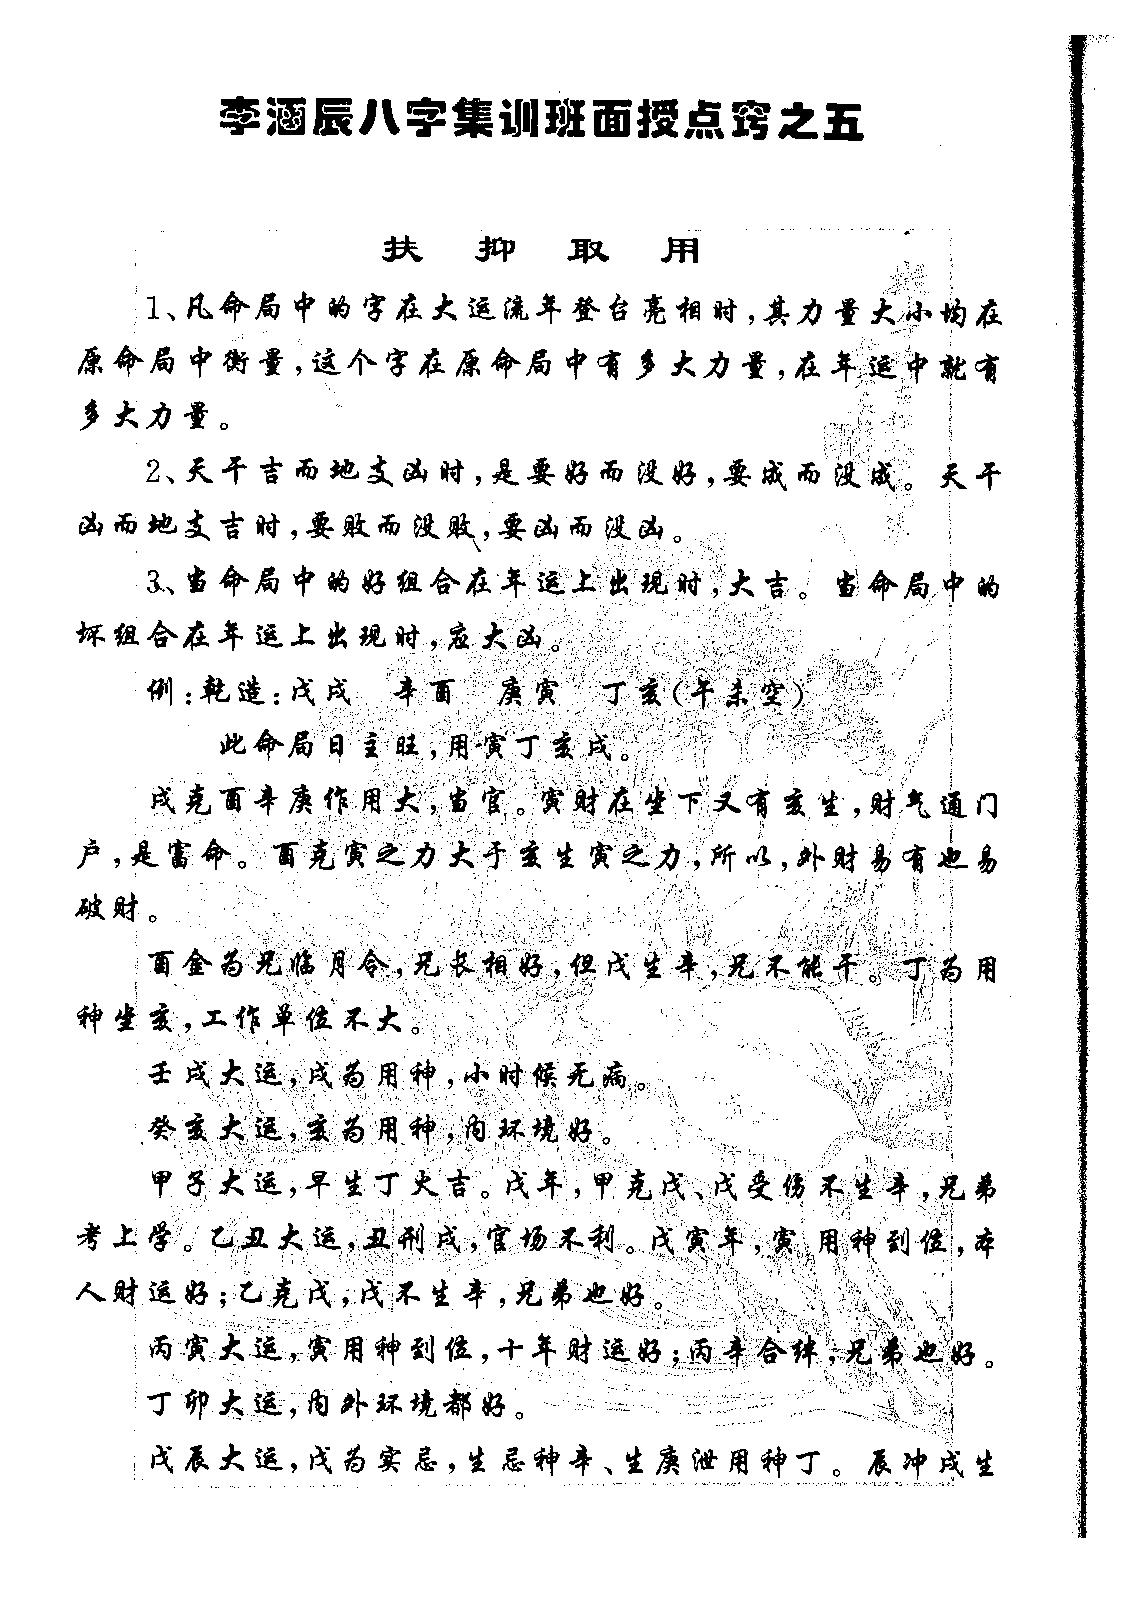 李涵辰八字集训班面授点窍之五
扶 抑 取 用
1、凡命局中的字在大运流年登台亮相时，其力量大小均在
原命局中衡量，这个字在原命局中有多大力量，在年运中就有
多大力量。
2、天干吉而地支凶时，是要好而没好，要成而没成。天干
凶而地支吉时，要败而没败，要凶而没凶。
3、当命局中的好组合在年运上出现时，大吉。当命局中的
坏组合在年运上出现时，应大凶。
例：乾造：戊戌 辛酉 庚寅 丁亥(午未空)
此命局日主旺，用寅丁亥戌。
戌克酉辛庚作用大，当官。寅财在坐下又有亥生，财气通门
户，是富命。酉克寅之力大于亥生寅之力，所以，外财易有也易
破财。
酉金为兄临月令，兄长相好，但戊生辛，兄不能干。丁为用
神坐亥，工作单位不大。
壬戌大运，戌为用神，小时候无病。
癸亥大运，亥为用神，内环境好。
甲子大运，早生丁火吉。戊年，甲克戊、戊受伤不生辛，兄弟
考上学。乙丑大运，丑刑戌，官场不利。戊寅年，寅用神到位，本
人财运好；乙克戊，戊不生辛，兄弟也好。
丙寅大运，寅用神到位，十年财运好；丙辛合绊，兄弟也好。
丁卯大运，内外环境都好。
戊辰大运，戊为实忌，生忌神辛、生庚泄用神丁。辰冲戌生